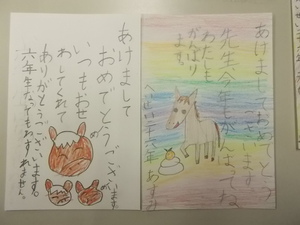 あけまして
おめでとうございます
先生今年もがんばってね
わたしも
がんばり
ます。
あけまして
おめでとうござい
ます
いつもおせ
わしてくれて
ありがとうございます。
六年生なってもわすれません。